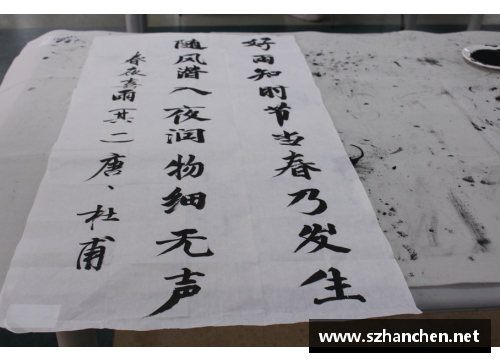 好雨知时节当春乃发生
随风潜入夜润物细无声
春夜喜雨其二唐、杜甫
www.szhanchen.net